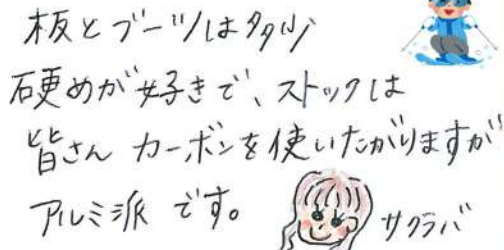 板とブーツは多少
硬めが好きで、ストックは
皆さん カーボンを使いたがりますが
アルミ派 です。
サクラバ